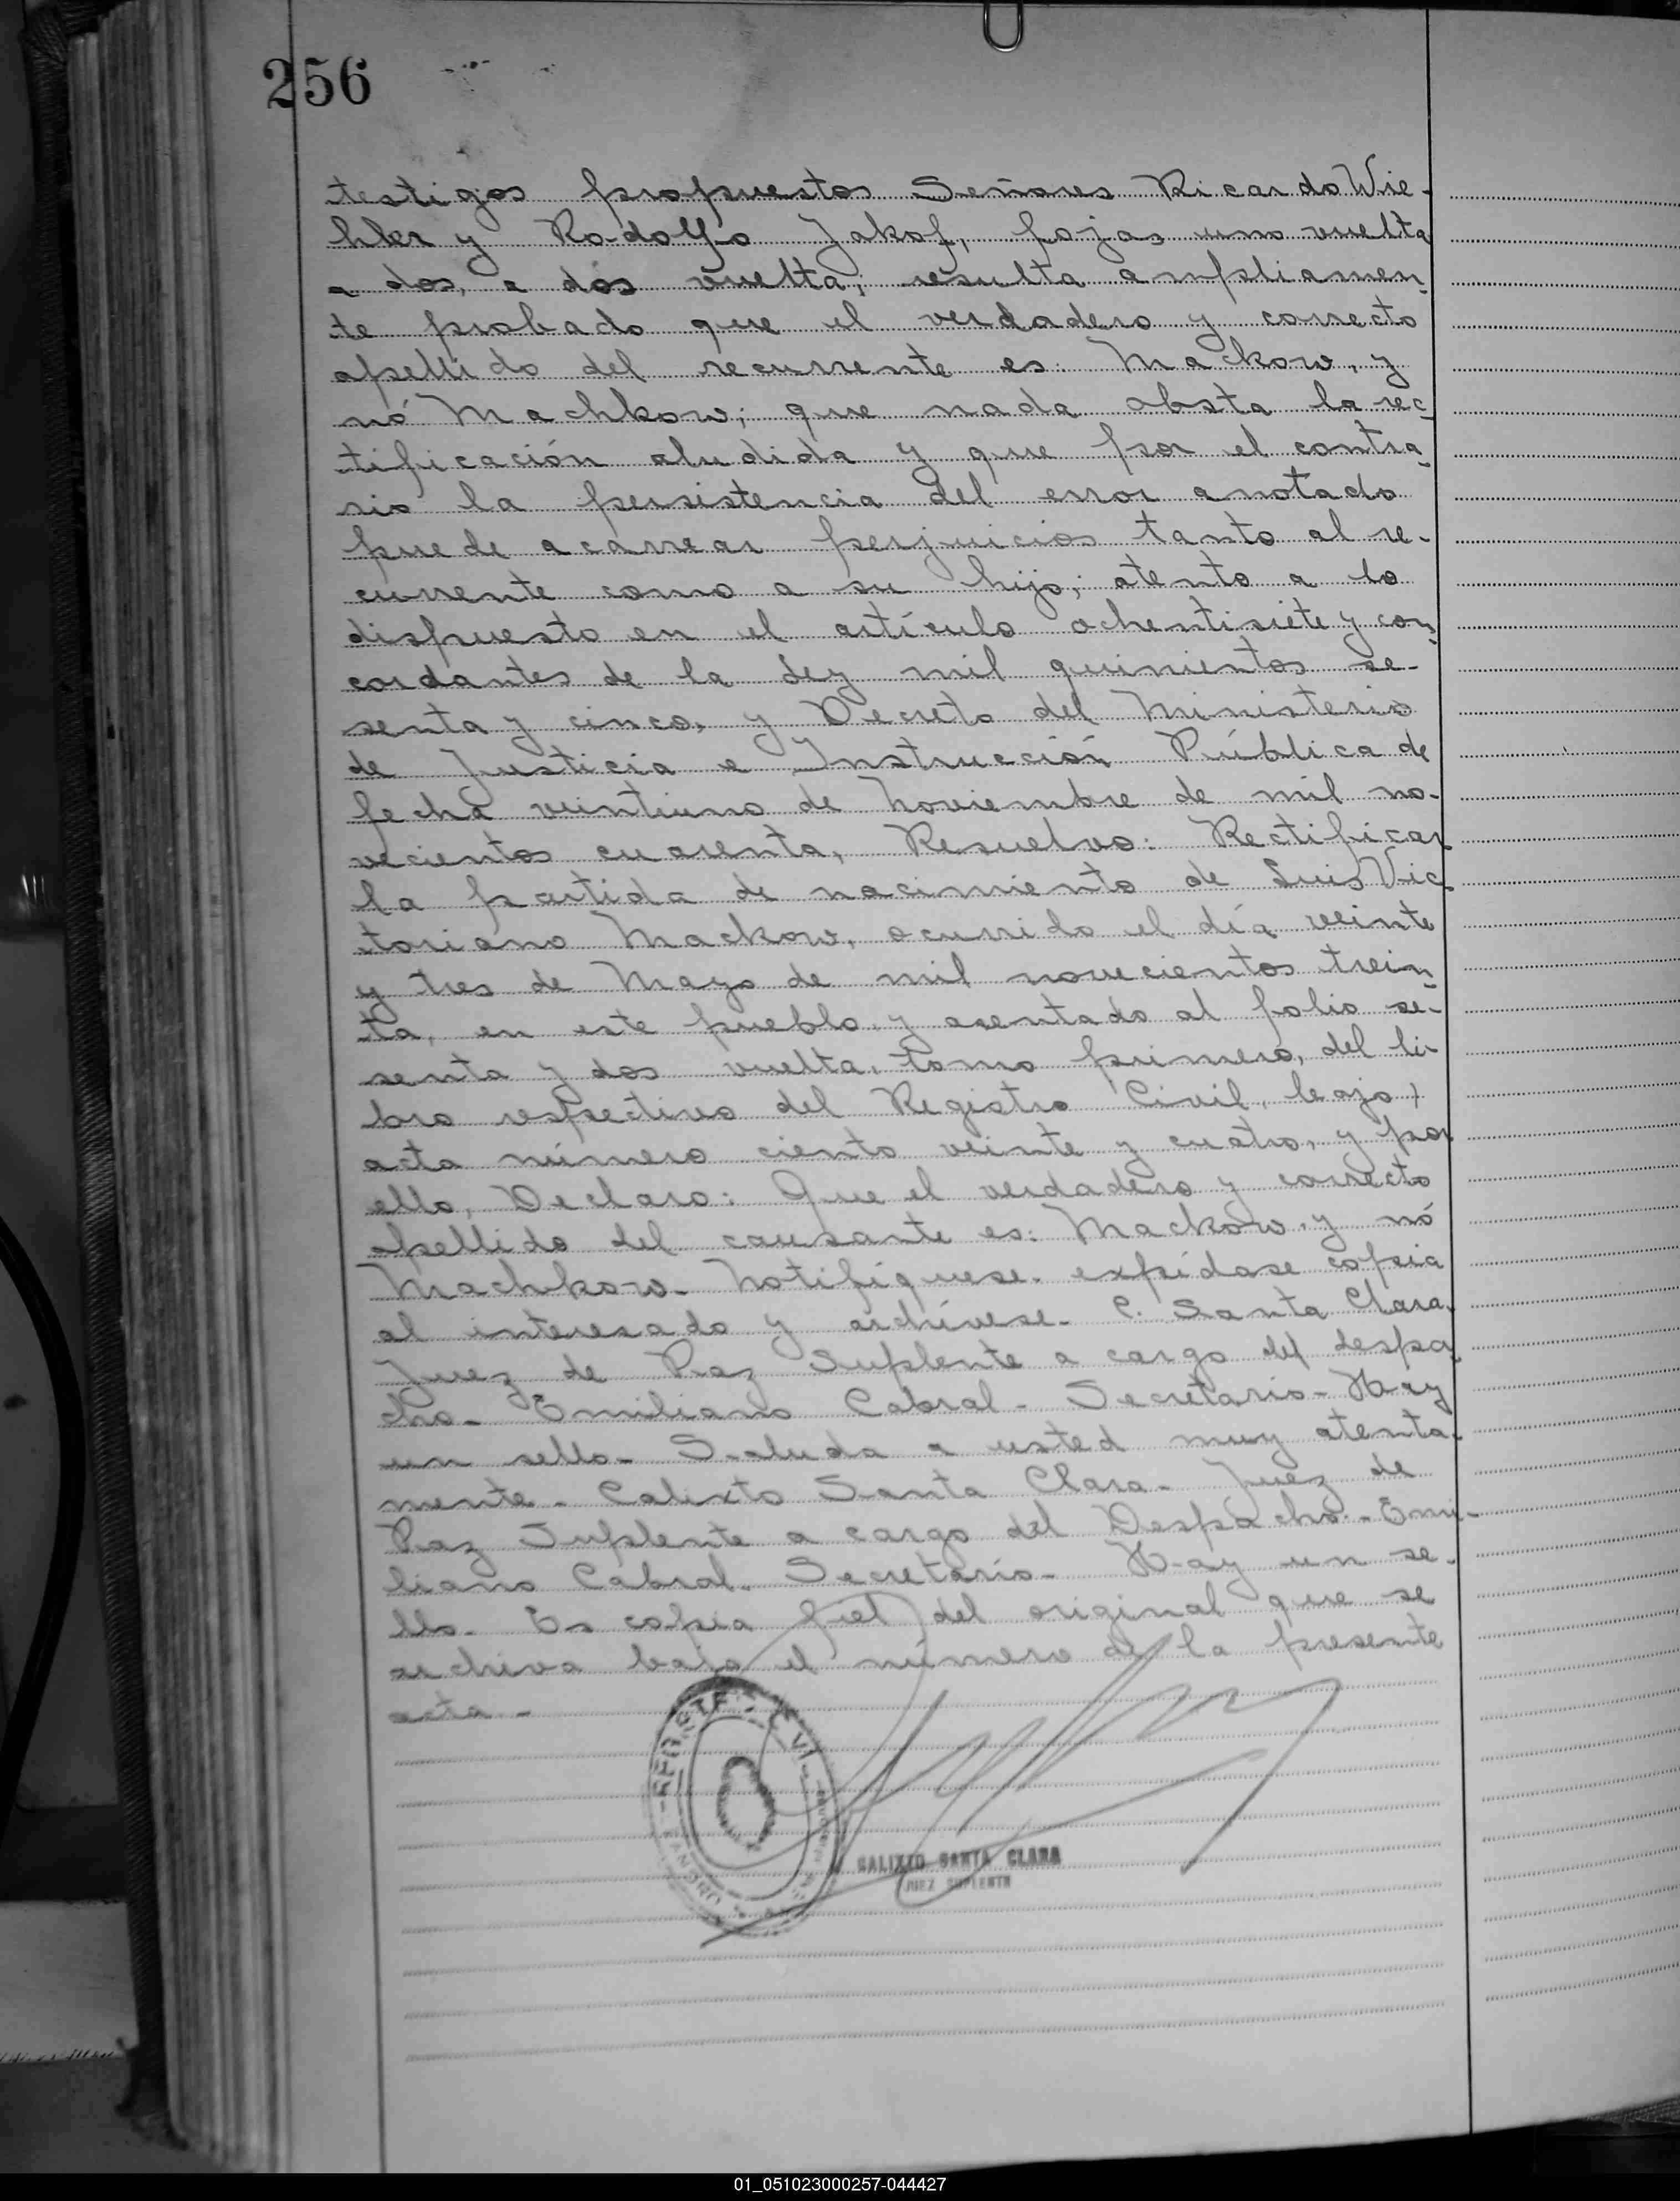 256
testigos propuestos Señores Ricardo Wie-
hler y Rodolfo Jakof, fojas uno vuelta
a dos, a dos vuelta; resulta ampliamen-
te probado que el verdadero y correcto
apellido del recurrente es: Mackow, y
nó Machkow; que nada obsta la rec-
tificación aludida y que por el contra-
rio la persistencia del error anotado
puede acarrear perjuicios tanto al re-
currente como a su hijo; atento a lo
dispuesto en el artículo ochentisiete y con-
cordantes de la Ley mil quinientos se-
senta y cinco, y Decreto del Ministerio
de Justicia e Instrucción Pública de
fecha veintiuno de Noviembre de mil no-
vecientos cuarenta, Resuelvo: Rectificar
la partida de nacimiento de Luis Vic-
toriano Mackow, ocurrido el día veinte
y tres de Mayo de mil novecientos trein-
ta, en este pueblo y asentado al folio se-
senta y dos vuelta, tomo primero, del li-
bro respectivo del Registro Civil, bajo
acta número ciento veinte y cuatro, y por
ello, Declaro: Que el verdadero y correcto
apellido del causante es: Mackow, y nó
Machkow. Notifíquese. expídase copia
al interesado y archívese. C. Santa Clara,
Juez de Paz Suplente a cargo del despa-
cho - Emiliano Cabral - Secretario - Hay
un sello - Saluda a usted muy atenta-
mente - Calixto Santa Clara - Juez de
Paz Suplente a cargo del Despacho - Emi-
liano Cabral. Secretario - Hay un se-
llo - Es copia fiel del original que se
archiva bajo el número de la presente
acta -
CALIXTO SANTA CLARA
JUEZ SUPLENTE
01_051023000257-044427